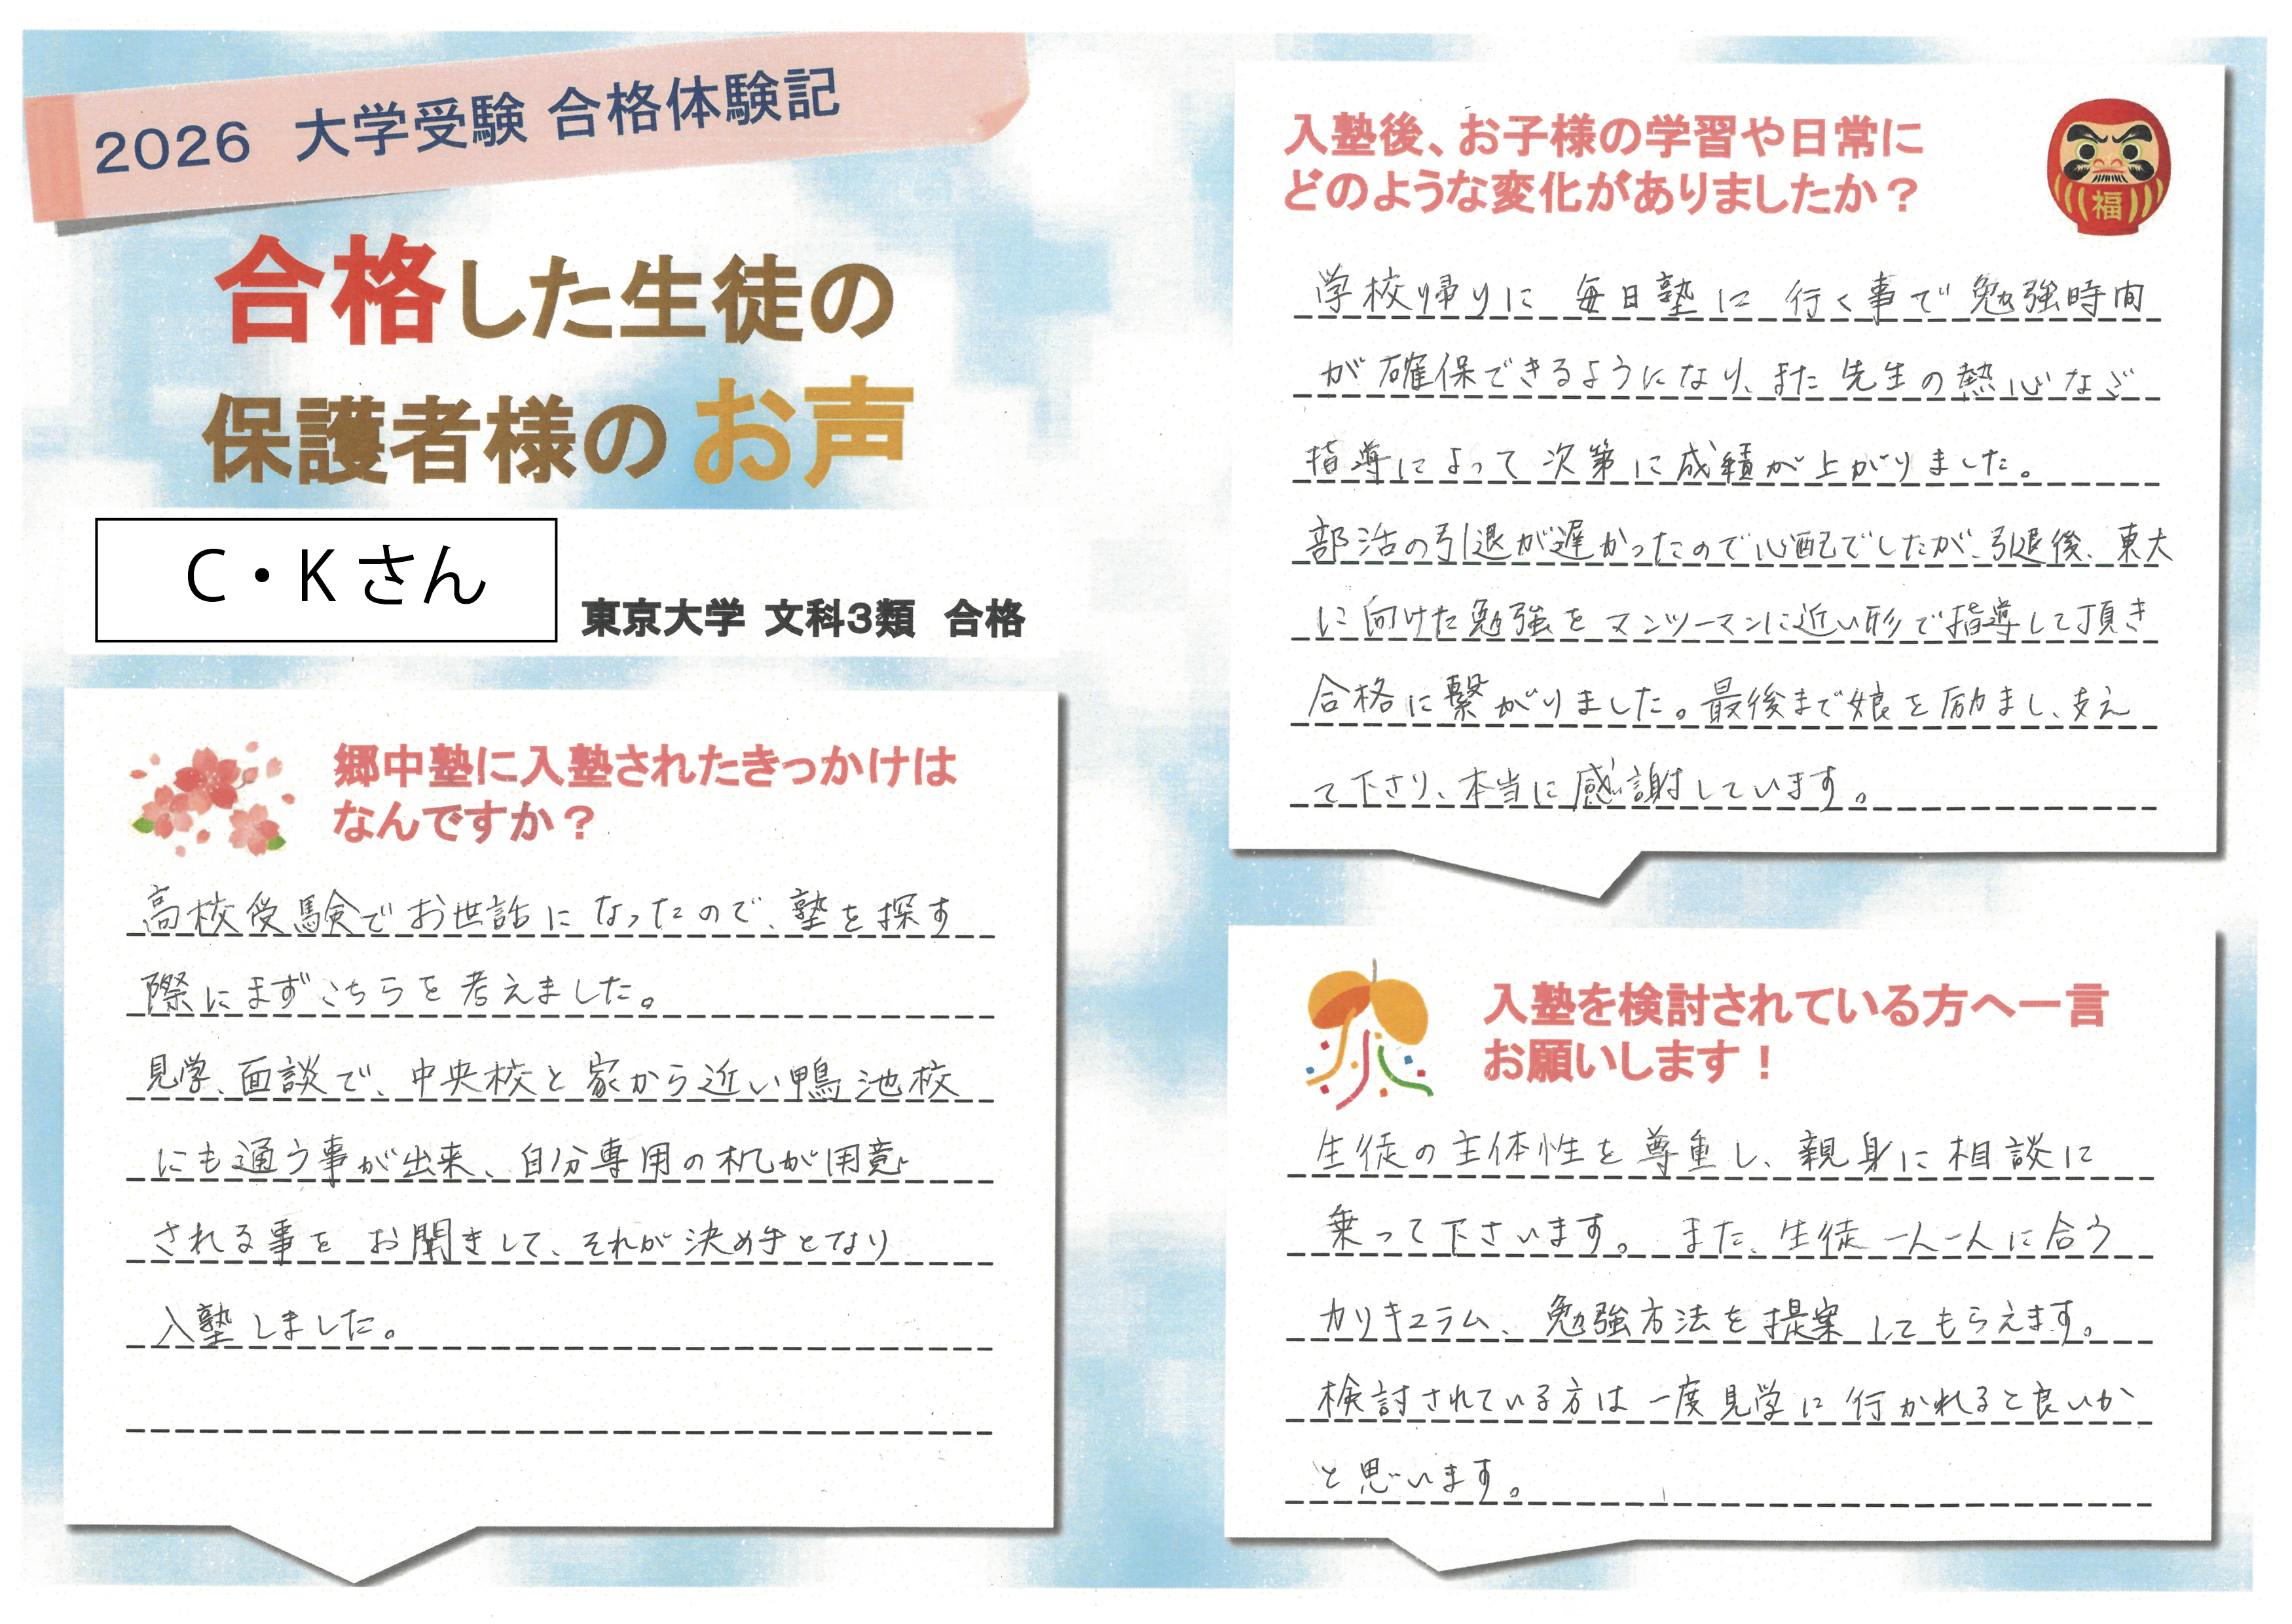 2026 大学受験 合格体験記
合格した生徒の
保護者様のお声
C・Kさん
東京大学 文科3類 合格
郷中塾に入塾されたきっかけは
なんですか？
高校受験でお世話になったので、塾を探す
際にまずこちらを考えました。
見学、面談で、中央校と家から近い鴨池校
にも通う事が出来、自分専用の机が用意
される事をお聞きして、それが決め手となり
入塾しました。
入塾後、お子様の学習や日常に
どのような変化がありましたか？
福
学校帰りに毎日塾に行く事で勉強時間
が確保できるようになり、また先生の熱心なご
指導によって次第に成績が上がりました。
部活の引退が遅かったので心配でしたが、引退後、東大
に向けた勉強をマンツーマンに近い形で指導して頂き
合格に繋がりました。最後まで娘を励まし、支え
て下さり、本当に感謝しています。
入塾を検討されている方へ一言
お願いします！
生徒の主体性を尊重し、親身に相談に
乗って下さいます。また、生徒一人一人に合う
カリキュラム、勉強方法を提案してもらえます。
検討されている方は一度見学に行かれると良いか
と思います。